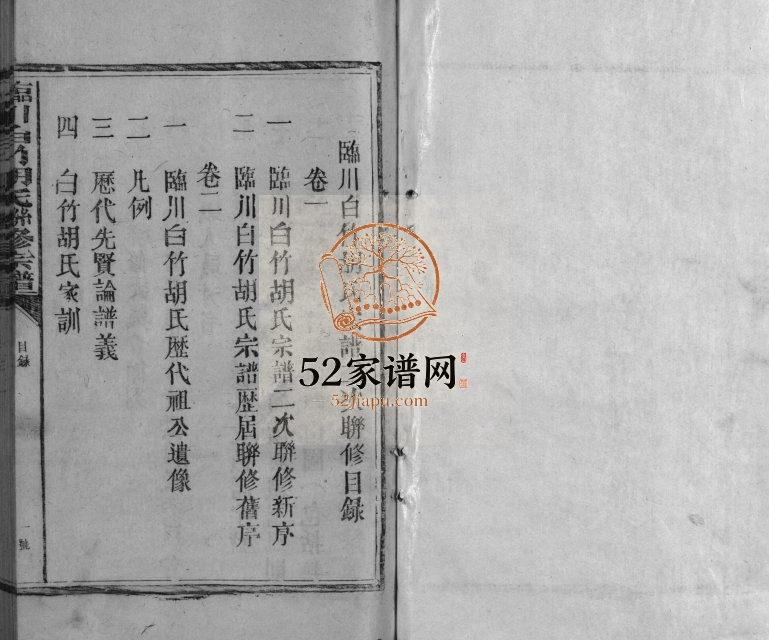 臨川白竹胡氏 譜 次聯修目録
卷一
一 臨川白竹胡氏宗譜二次聯修新序
二 臨川白竹胡氏宗譜歷屆聯修舊序
卷二
一 臨川白竹胡氏歷代祖公遺像
二 凡例
三 歷代先賢論譜義
四 白竹胡氏家訓
臨川白竹胡氏聯修宗譜
目録
一號
52家谱网
52jiapu.com